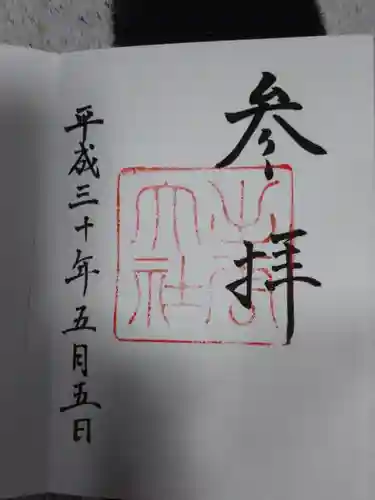 参拝
平成三十年五月五日